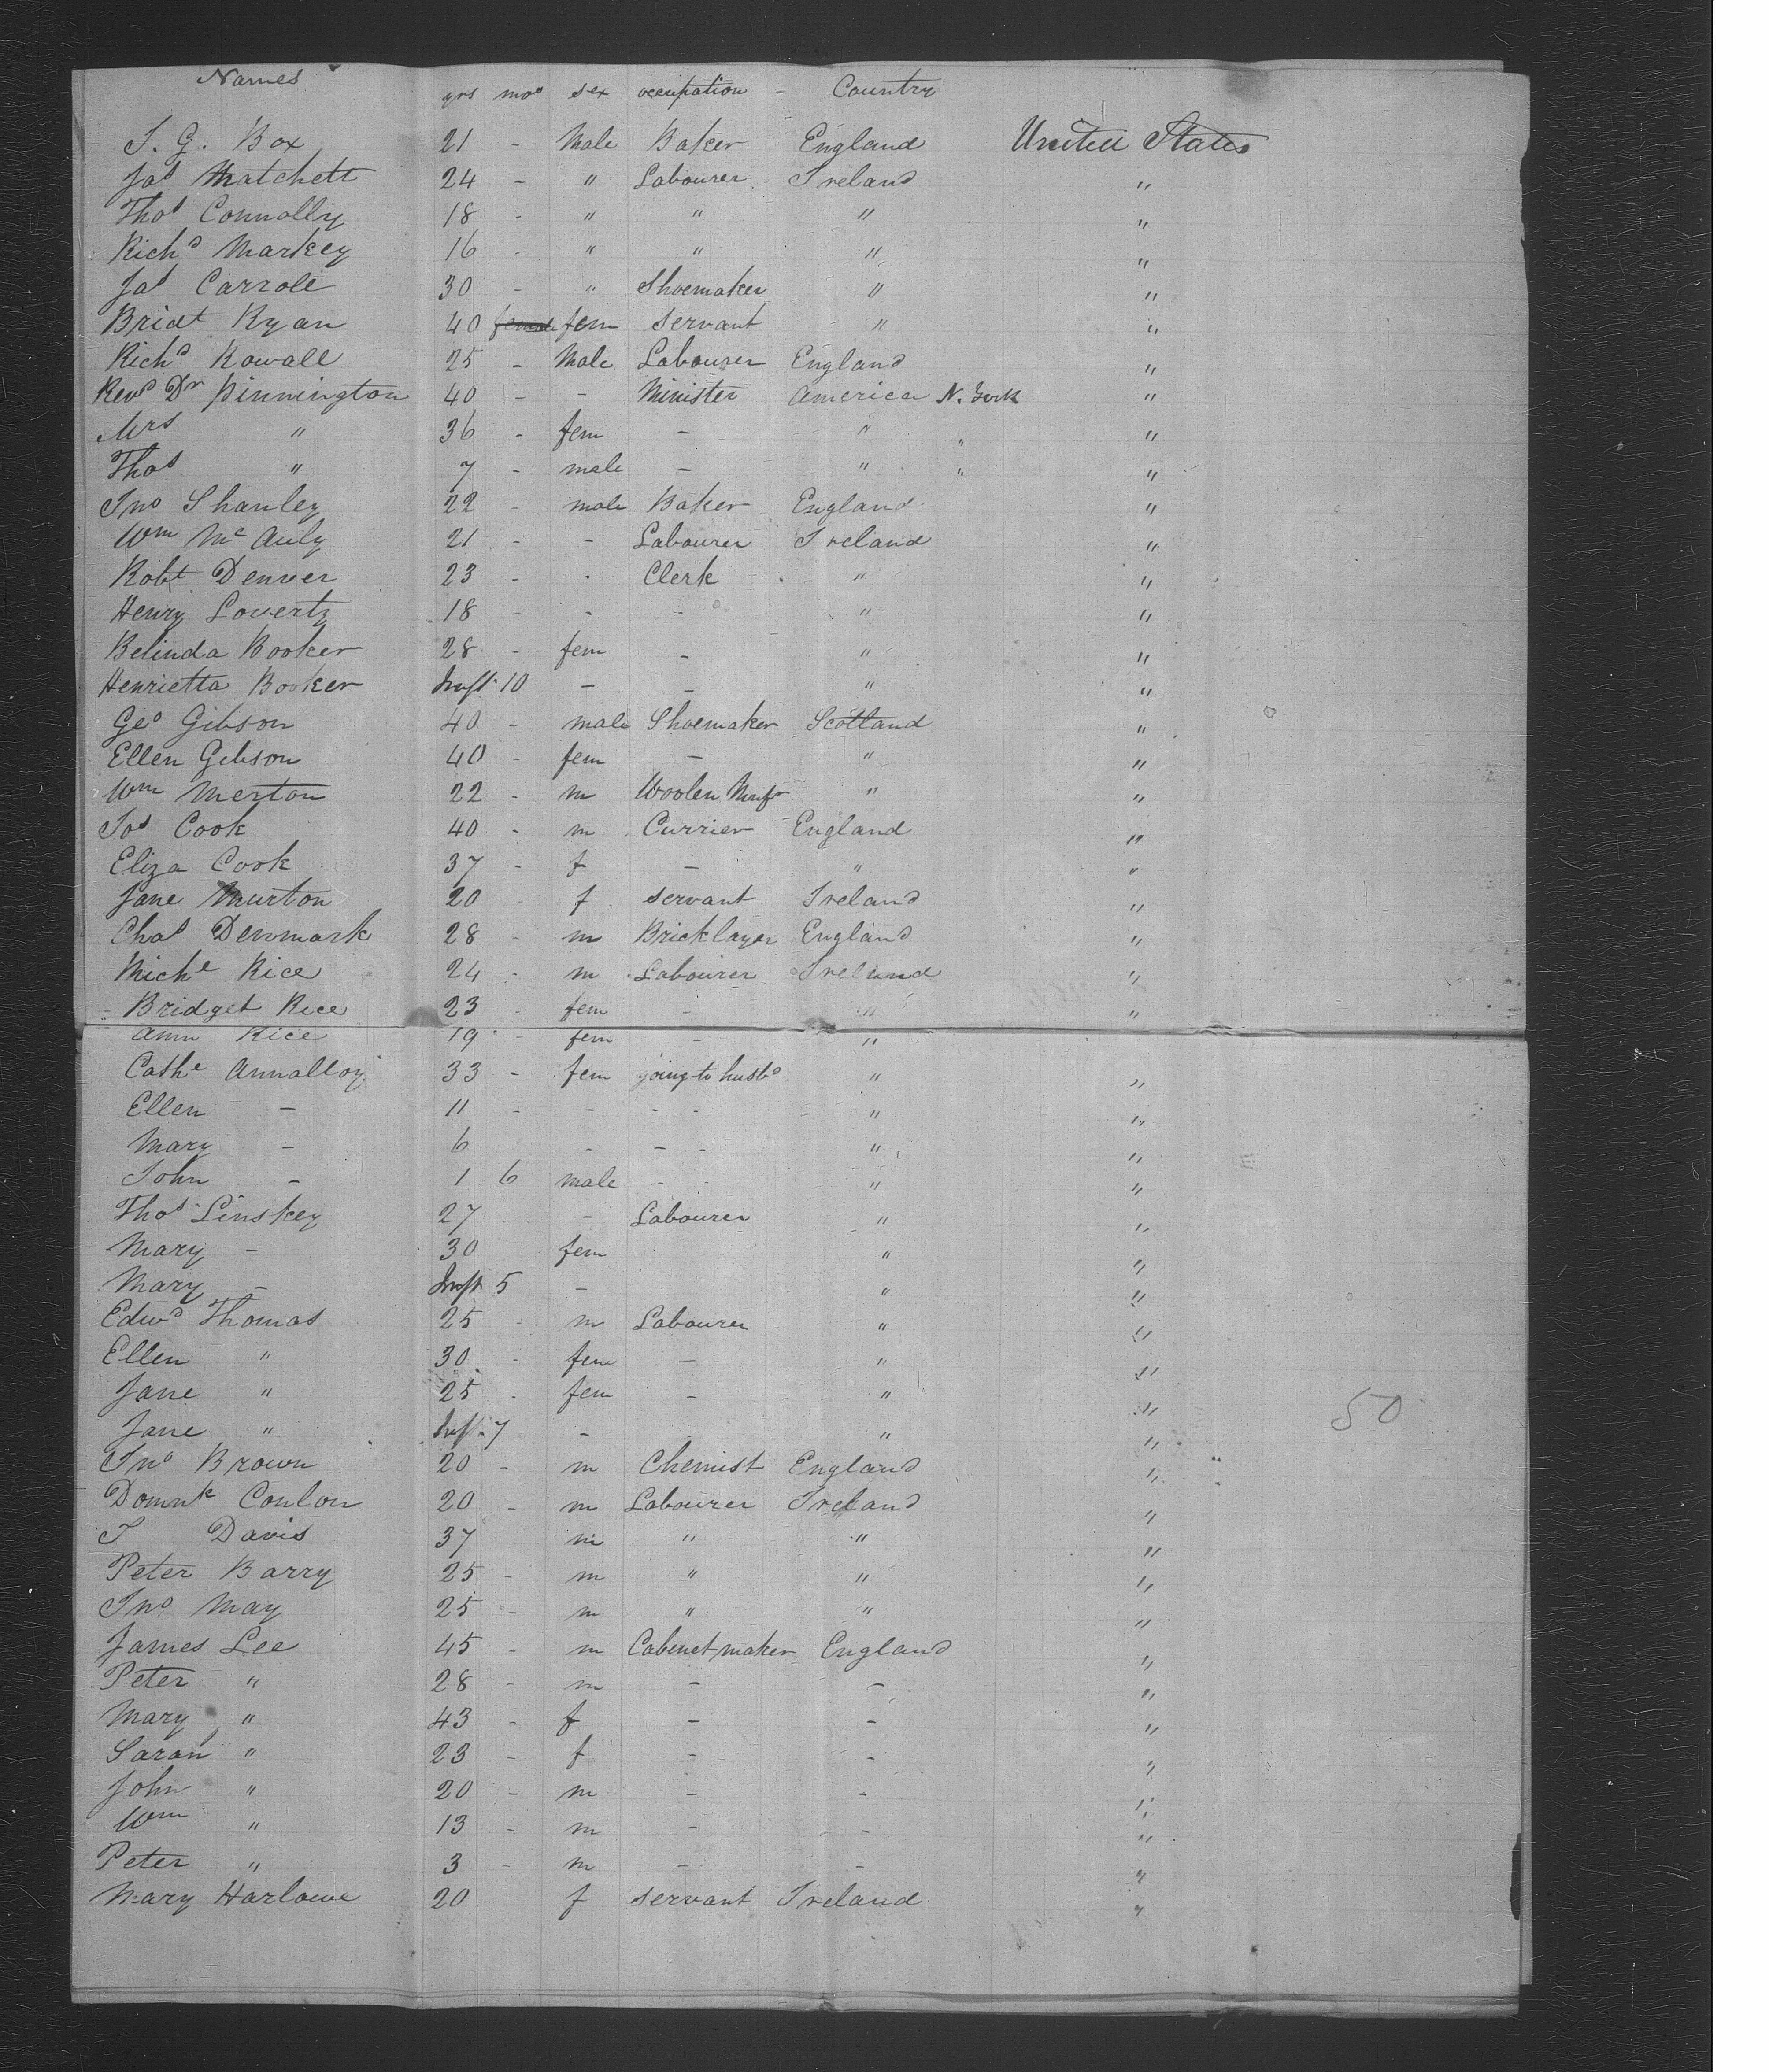 Names yrs mos sex occupation - Country
J. G. Box 21 - Male Baker England United States
Jas Matchett 24 - " Labourer Ireland "
Thos Connolly 18 - " " " "
Richd Markey 16 - " " " "
Jas Carroll 30 - " Shoemaker " "
Bridt Ryan 40 female fem servant " "
Richd Rowall 25 - Male Labourer England "
Revd Dr Pinnington 40 - - Minister America N. York "
Mrs " 36 - fem - " " "
Thos " 7 - male - " " "
Jno Shanley 22 - male Baker England "
Wm McAuly 21 - - Labourer Ireland "
Robt Denver 23 - - Clerk " "
Henry Lovertz 18 - - - " "
Belinda Booker 28 - fem - " "
Henrietta Booker Inft 10 - - " "
Geo Gibson 40 - male Shoemaker Scotland "
Ellen Gibson 40 - fem - " "
Wm Merton 22 - m Woolen Manfr " "
Jos Cook 40 - m Currier England "
Eliza Cook 37 - f - " "
Jane Murton 20 - f servant Ireland "
Chas Denmark 28 - m Bricklayer England "
Michl Rice 24 - m Labourer Ireland "
Bridget Rice 23 - fem - " "
Ann Rice 19 - fem - "
Cathe Annalloy 33 - fem going to husbd " "
Ellen - 11 - - - - " "
Mary - 6 - - - " "
John - 1 6 male - - " "
Thos Linskey 27 - Labourer " "
Mary - 30 fem " "
Mary - Inft 5 - " "
Edwd Thomas 25 - m Labourer " "
Ellen " 30 - fem - " "
Jane " 25 - fem - " "
Jane " Inft 7 - " "
50
Jno Brown 20 - m Chemist England "
Domnk Conlon 20 - m Labourer Ireland "
J Davis 37 m " " "
Peter Barry 25 - m " " "
Jno May 25 - m " " "
James Lee 45 - m Cabinet maker England "
Peter " 28 - m - - "
Mary " 43 - f - - "
Sarah " 23 - f - - "
John " 20 - m - - "
Wm " 13 - m - - "
Peter " 3 - m - - "
Mary Harlowe 20 f servant Ireland "